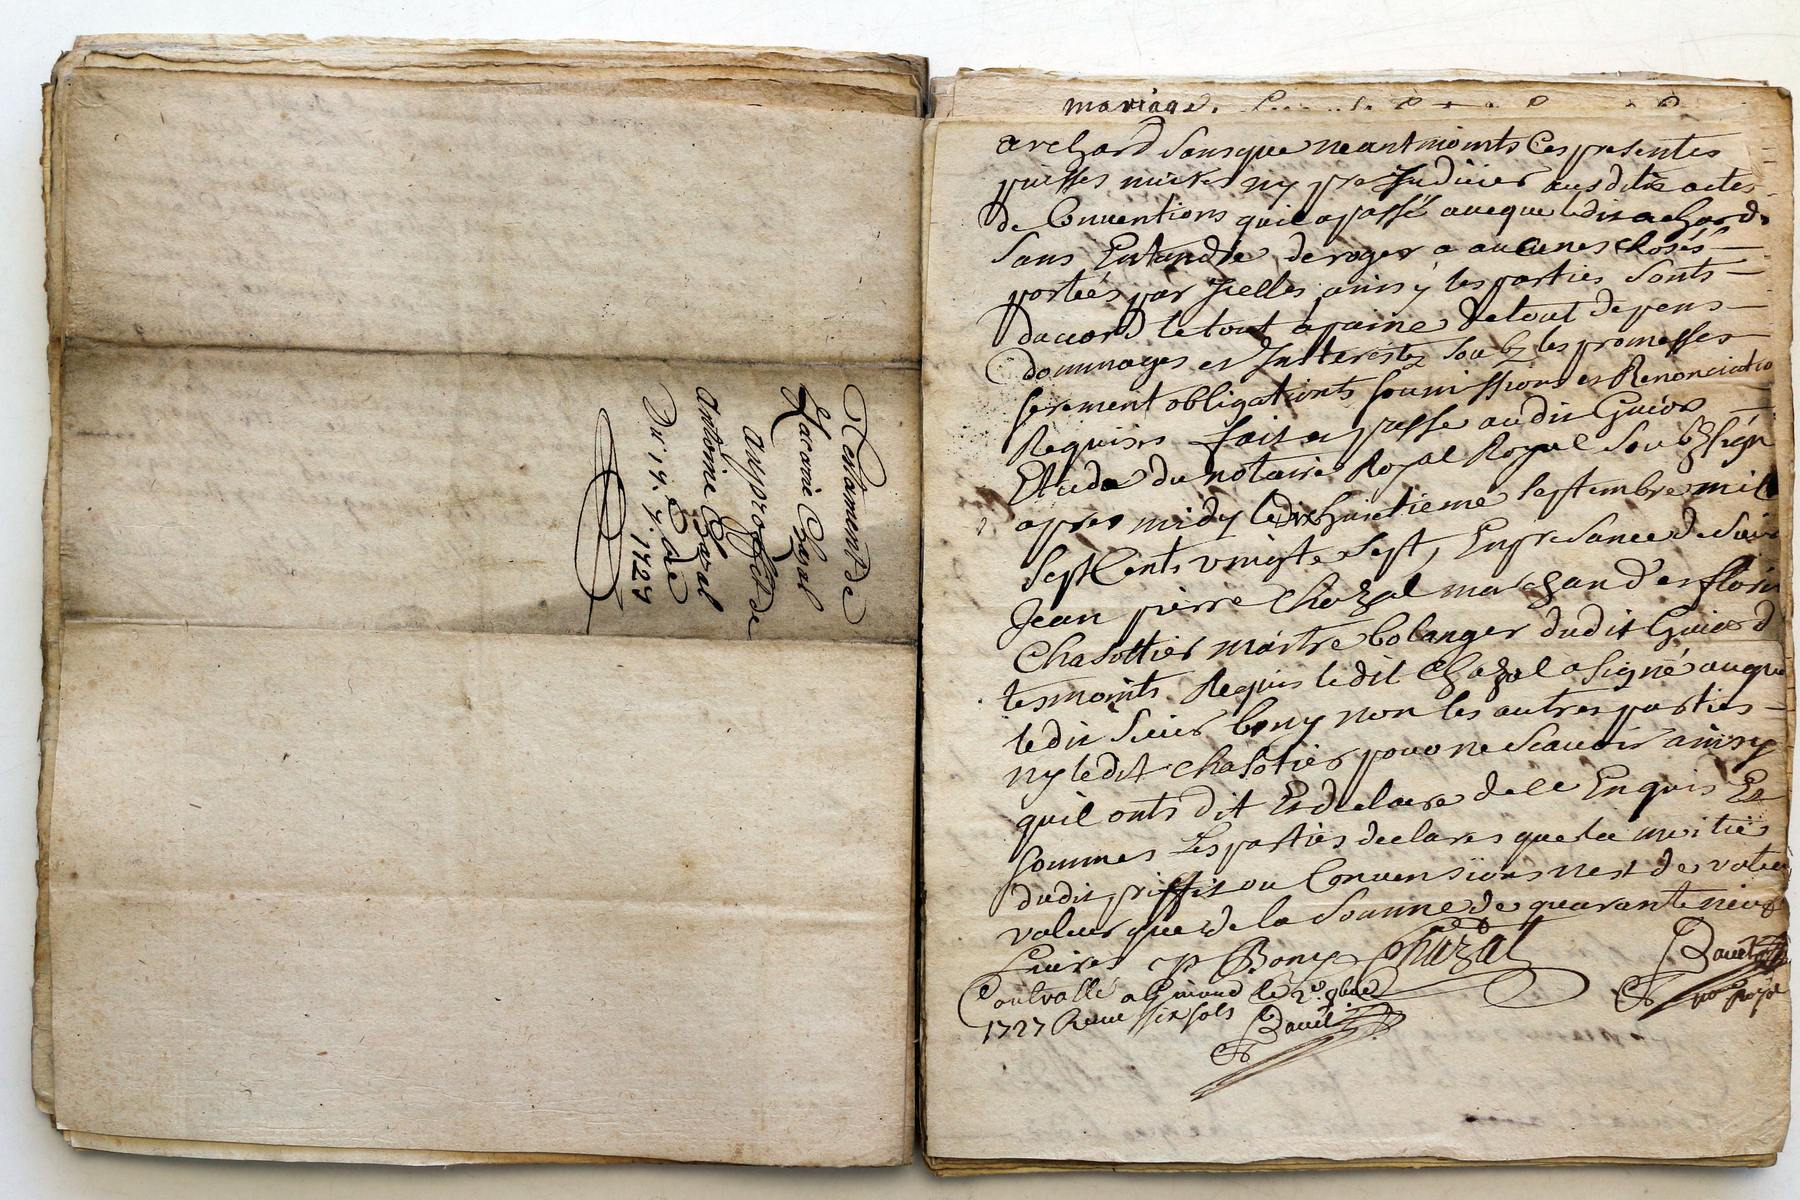 Testament de
Zacarie Chazal
au proffit de
Antoine Chazal
Du 14. 1727
mariage.
archard sans que neantmoints Ces presentes
puisses nuires ny preJudicier ausdits actes
de Conventions quil a passé avecque ledit achard
sans Entandre deroger a aucunes choses
portées par Jcelles ainsy les parties sonts
daccord le tout a paine de tout depens
dommages et Jntterests soubz les promesses
serement obligations soumissions et Renonciatio
Requises fait et passe audit
Etude du notaire Royal Royal soubzsign
apres midy le dixhuictieme septembre mil
sept Cents vingte sept, En presance de
Jean pierre Chazal marchand et
Chasottier maistre bolanger dudit
tesmoints Requis ledit Chazal a signé avecque
ledit sieur bony non les autres parties
ny ledit chasotier pour ne scavoir ainsy
quil onts dit Et declare de ce Enquis Et
sommes Les parties declares que la moitié
dudit ou Convensions nest de valeu
valeur que de la somme de quarante neuf
Livres Bony Chazal
Controllé a le 2e 9bre
1727 Receu six sols